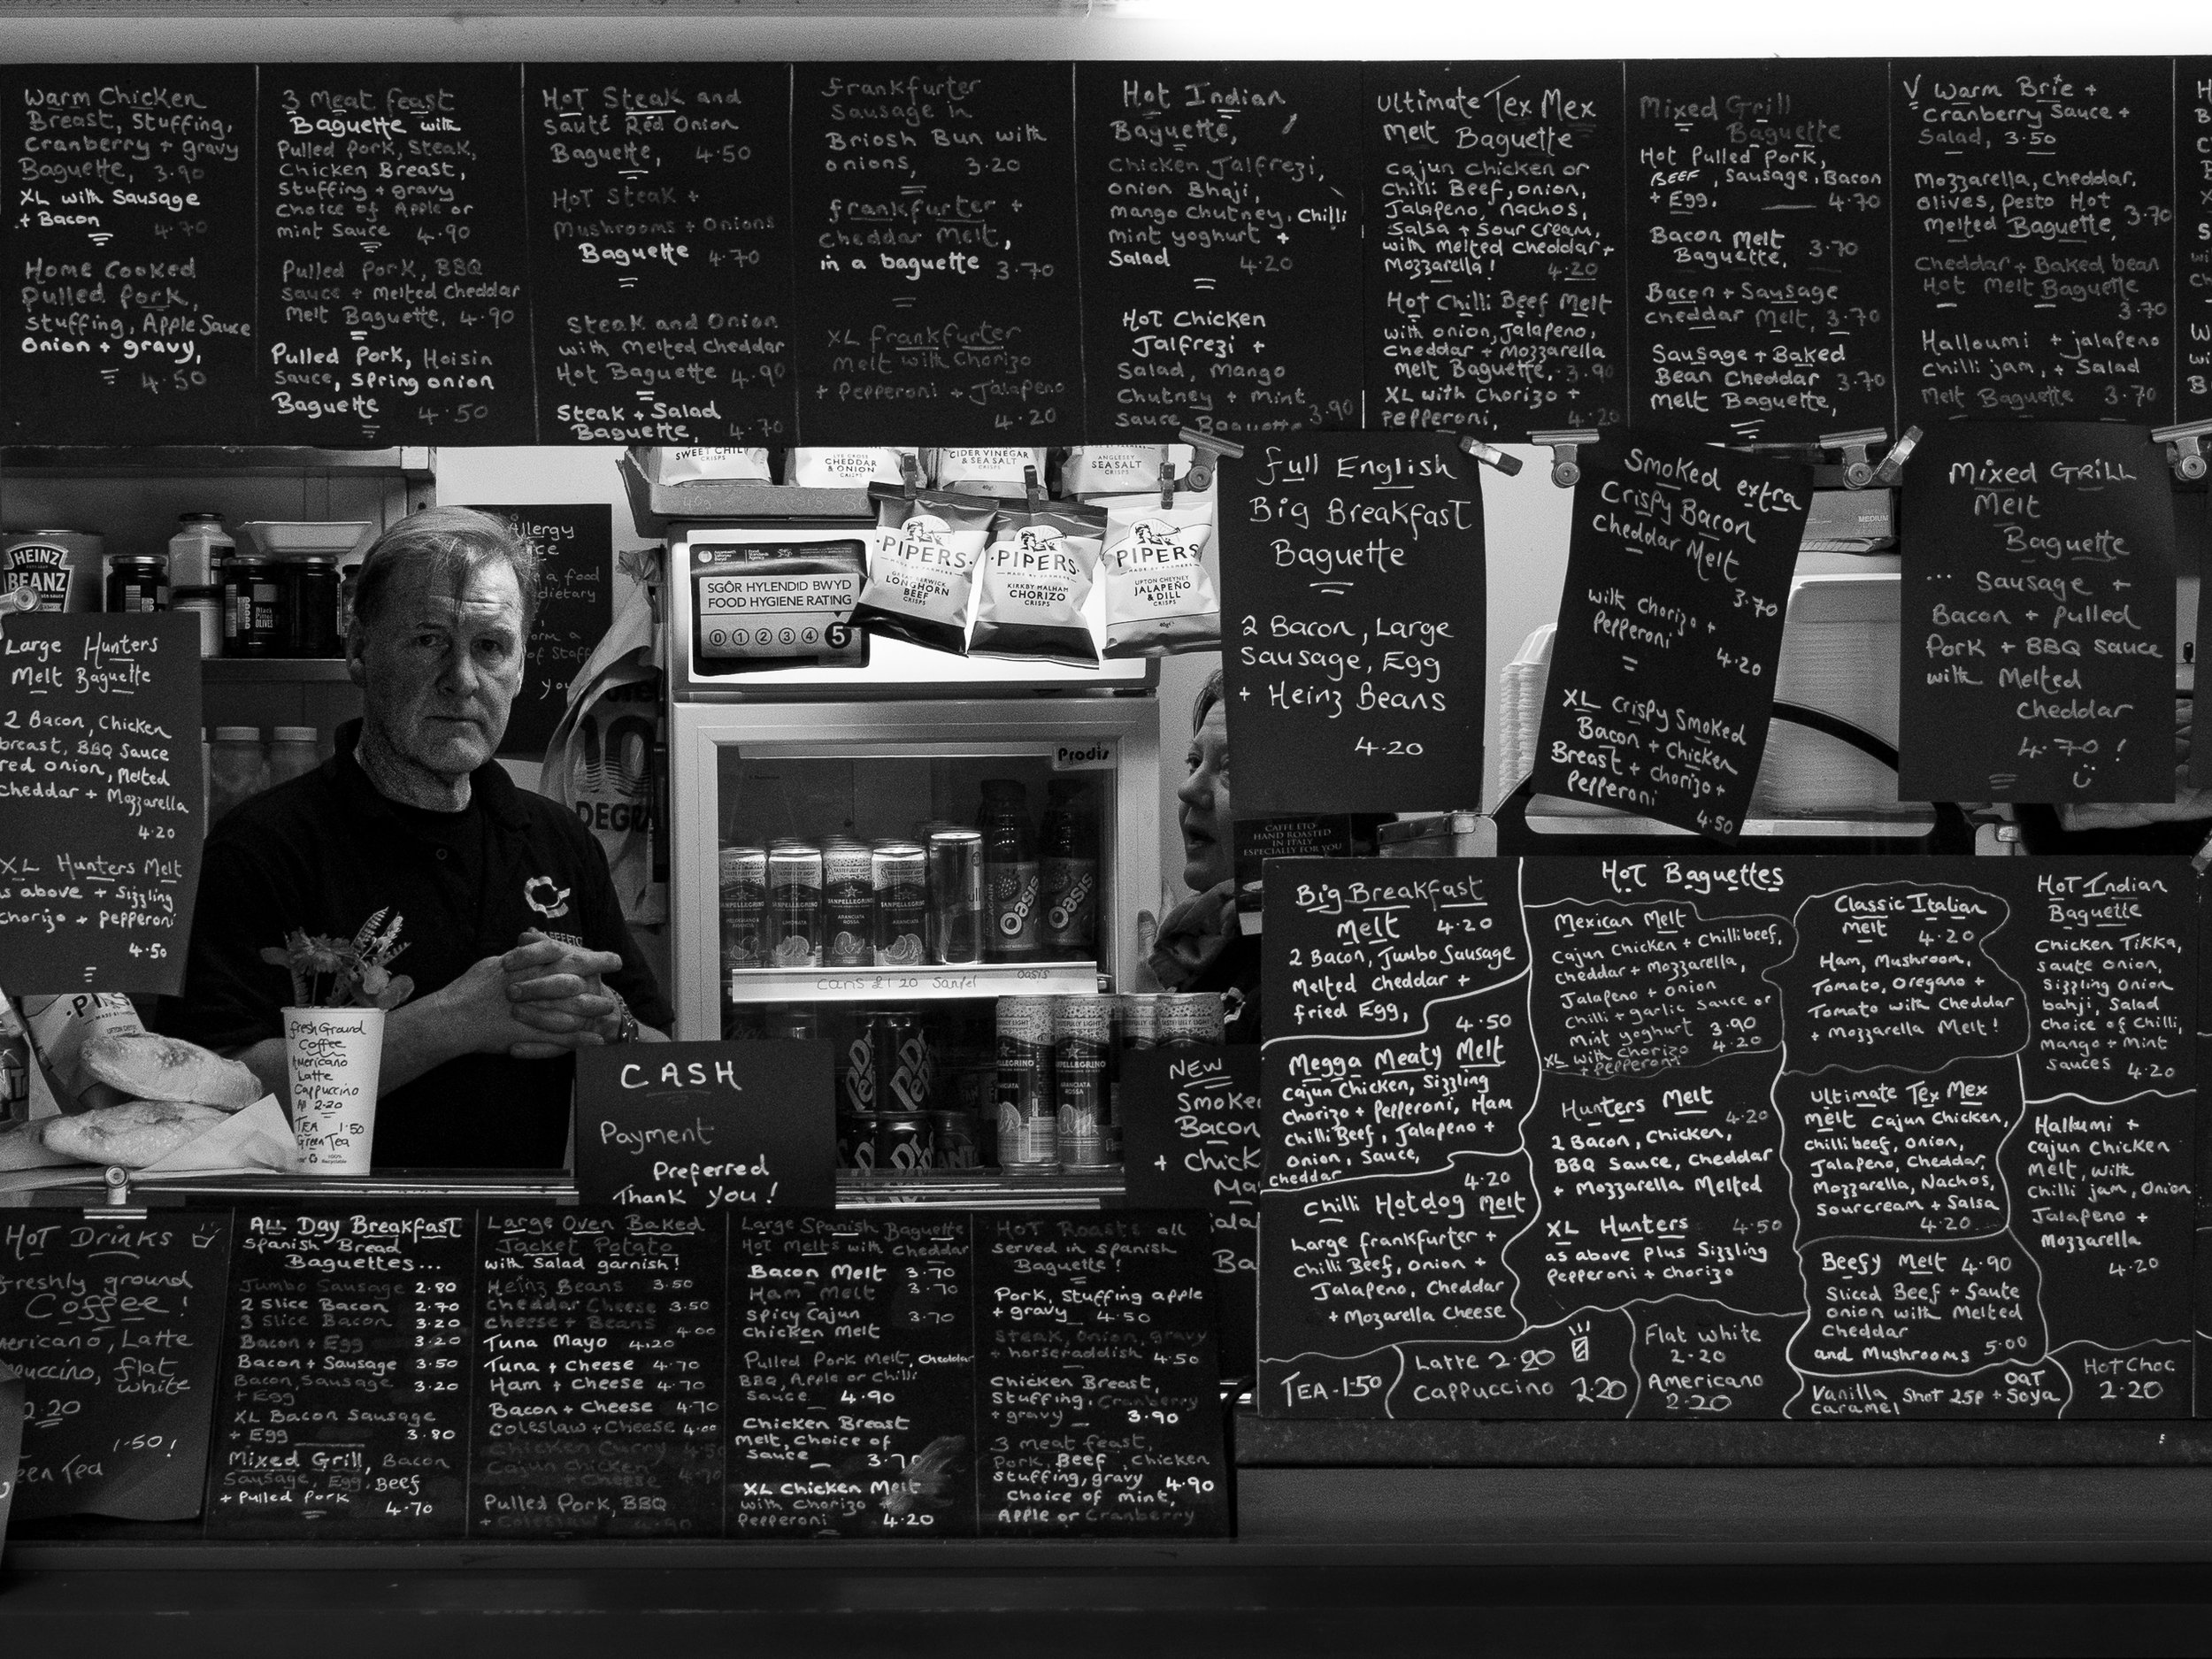 Warm Chicken
Breast, Stuffing,
Cranberry + gravy
Baguette, 3.90
XL with Sausage
+ Bacon 4.70
Home Cooked
Pulled Pork,
Stuffing, Apple Sauce
Onion + gravy,
4.50
3 Meat feast
Baguette with
Pulled Pork, Steak,
Chicken Breast,
Stuffing + gravy
Choice of Apple or
mint Sauce 4.90
Pulled Pork, BBQ
Sauce + Melted Cheddar
Melt Baguette, 4.90
Pulled Pork, Hoisin
Sauce, spring onion
Baguette 4.50
HoT Steak and
Sauté Red Onion
Baguette, 4.50
HoT Steak +
Mushrooms + Onions
Baguette 4.70
Steak and Onion
with Melted Cheddar
Hot Baguette 4.90
Steak + Salad
Baguette, 4.70
Frankfurter
Sausage in
Briosh Bun with
onions, 3.20
frankfurter +
Cheddar Melt,
in a baguette 3.70
XL frankfurter
Melt with Chorizo
+ Pepperoni + Jalapeno
4.20
Hot Indian
Baguette,
Chicken Jalfrezi,
Onion Bhaji,
mango Chutney, Chilli
mint yoghurt +
Salad 4.20
HoT Chicken
Jalfrezi +
Salad, Mango
Chutney + Mint
Sauce Baguette 3.90
Ultimate Tex Mex
Melt Baguette
Cajun Chicken or
Chilli Beef, onion,
Jalapeno, nachos,
Salsa + Sour Cream,
with Melted Cheddar +
Mozzarella! 4.20
Hot Chilli Beef Melt
with onion, Jalapeno,
Cheddar + Mozzarella
melt Baguette, 3.90
XL with Chorizo +
Pepperoni, 4.20
Mixed Grill
Baguette
Hot Pulled Pork,
BEEF, Sausage, Bacon
+ Egg. 4.70
Bacon Melt
Baguette, 3.70
Bacon + Sausage
Cheddar Melt, 3.70
Sausage + Baked
Bean Cheddar 3.70
Melt Baguette,
V Warm Brie +
Cranberry Sauce +
Salad, 3.50
Mozzarella, Cheddar,
olives, Pesto Hot
Melted Baguette, 3.70
Cheddar + Baked bean
Hot Melt Baguette
3.70
Halloumi + jalapeno
Chilli jam, + Salad
Melt Baguette 3.70
SWEET CHILLI
CRISPS
CHEDDAR
& ONION
CRISPS
CIDER VINEGAR
& SEA SALT
CRISPS
ANGLESEY
SEA SALT
CRISPS
HEINZ
BEANZ
Black
OLIVES
Allergy
a food
dietary
of Staff
SGÔR HYLENDID BWYD
FOOD HYGIENE RATING
0 1 2 3 4 5
PIPERS
LONGHORN
BEEF
CRISPS
PIPERS
MADE BY FARMERS
KIRKBY MALHAM
CHORIZO
CRISPS
PIPERS
MADE BY FARMERS
UPTON CHEYNEY
JALAPEÑO
& DILL
CRISPS
40g
10
DEGR
Prodis
SANPELLEGRINO
Oasis
Oasis
Cans £1 20 Sanpel Oasis
Dr Pepper
CAFFE ETO
HAND ROASTED
IN ITALY
ESPECIALLY FOR YOU
Large Hunters
Melt Baguette
2 Bacon, Chicken
breast, BBQ Sauce
red onion, Melted
Cheddar + Mozzarella
4.20
XL Hunters Melt
as above + Sizzling
Chorizo + Pepperoni
4.50
full English
Big Breakfast
Baguette
2 Bacon, Large
Sausage, Egg
+ Heinz Beans
4.20
Smoked extra
Crispy Bacon
Cheddar Melt
3.70
with Chorizo +
Pepperoni
4.20
XL crispy Smoked
Bacon + Chicken
Breast + chorizo +
Pepperoni
4.50
Mixed GRILL
Melt
Baguette
... Sausage +
Bacon + Pulled
Pork + BBQ Sauce
with Melted
Cheddar
4.70!
fresh Ground
Coffee
Americano
Latte
Cappuccino
All 2.20
TEA 1.50
Green Tea
CASH
Payment
Preferred
Thank You!
NEW
Smoke
Bacon
+ Chick
Ma
jala
Ba
Big Breakfast
Melt 4.20
2 Bacon, Jumbo Sausage
Melted Cheddar +
fried Egg,
4.50
Megga Meaty Melt
Cajun Chicken, Sizzling
Chorizo + Pepperoni, Ham
Chilli Beef, Jalapeno +
Onion, Sauce,
cheddar
4.20
Chilli Hotdog Melt
Large frankfurter +
Chilli Beef, onion +
Jalapeno, Cheddar
+ Mozarella Cheese
HoT Baguettes
Mexican Melt
Cajun Chicken + Chilli beef,
Cheddar + Mozzarella,
Jalapeno + Onion
Chilli + garlic Sauce or
Mint yoghurt 3.90
XL with Chorizo 4.20
+ Pepperoni
Hunters Melt
4.20
2 Bacon, Chicken,
BBQ Sauce, Cheddar
+ Mozzarella Melted
XL Hunters 4.50
as above plus Sizzling
Pepperoni + Chorizo
Classic Italian
Melt 4.20
Ham, Mushroom,
Tomato, Oregano +
Tomato with Cheddar
+ Mozzarella Melt!
Ultimate Tex Mex
Melt Cajun Chicken,
Chilli beef, Onion,
Jalapeno, Cheddar,
Mozzarella, Nachos,
Sourcream + Salsa
4.20
Beefy Melt 4.90
Sliced Beef + Saute
onion with Melted
Cheddar
and Mushrooms 5.00
HoT Indian
Baguette
Chicken Tikka,
Saute onion,
Sizzling onion
bahji, Salad
Choice of Chilli,
Mango + Mint
Sauces 4.20
Hallumi +
Cajun Chicken
Melt, with
Chilli jam, Onion
Jalapeno +
Mozzarella
4.20
TEA-1.50
Latte 2.20
Cappuccino 2.20
Flat White
2.20
Americano
2.20
Vanilla Shot 25p + OAT Soya
Caramel
Hot Choc
2.20
HoT Drinks
freshly ground
Coffee!
Americano, Latte
flat
white
2.20
1.50!
Green Tea
ALL Day Breakfast
Spanish Bread
Baguettes...
Jumbo Sausage 2.80
2 Slice Bacon 2.70
3 Slice Bacon 3.20
Bacon + Egg 3.20
Bacon + Sausage 3.50
Bacon, Sausage 3.20
+ Egg
XL Bacon Sausage
+ Egg 3.80
Mixed Grill, Bacon
Sausage, Egg, Beef
+ Pulled Pork
4.70
Large Oven Baked
Jacket Potato
with Salad garnish!
Heinz Beans 3.50
Cheddar Cheese 3.50
Cheese + Beans 4.00
Tuna Mayo 4.20
Tuna + Cheese 4.70
Ham + Cheese 4.70
Bacon + Cheese 4.70
Coleslaw + Cheese 4.00
Chicken Curry 4.50
Cajun Chicken
+ Cheese 4.70
Pulled Pork, BBQ
+ Coleslaw 4.90
Large Spanish Baguette
Hot Melts with Cheddar
Bacon Melt 3.70
Ham Melt 3.70
Spicy Cajun 3.70
Chicken Melt
Pulled Pork Melt, Cheddar
BBQ, Apple or Chilli
Sauce 4.90
Chicken Breast
Melt, Choice of
Sauce 3.70
XL Chicken Melt
with Chorizo
Pepperoni 4.20
HoT Roasts all
served in Spanish
Baguette!
Pork, Stuffing apple
+ gravy 4.50
Steak, Onion, gravy
+ horseraddish 4.50
Chicken Breast,
Stuffing, Cranberry
+ gravy 3.90
3 meat feast,
Pork, Beef, Chicken
Stuffing, gravy 4.90
Choice of mint,
Apple or Cranberry